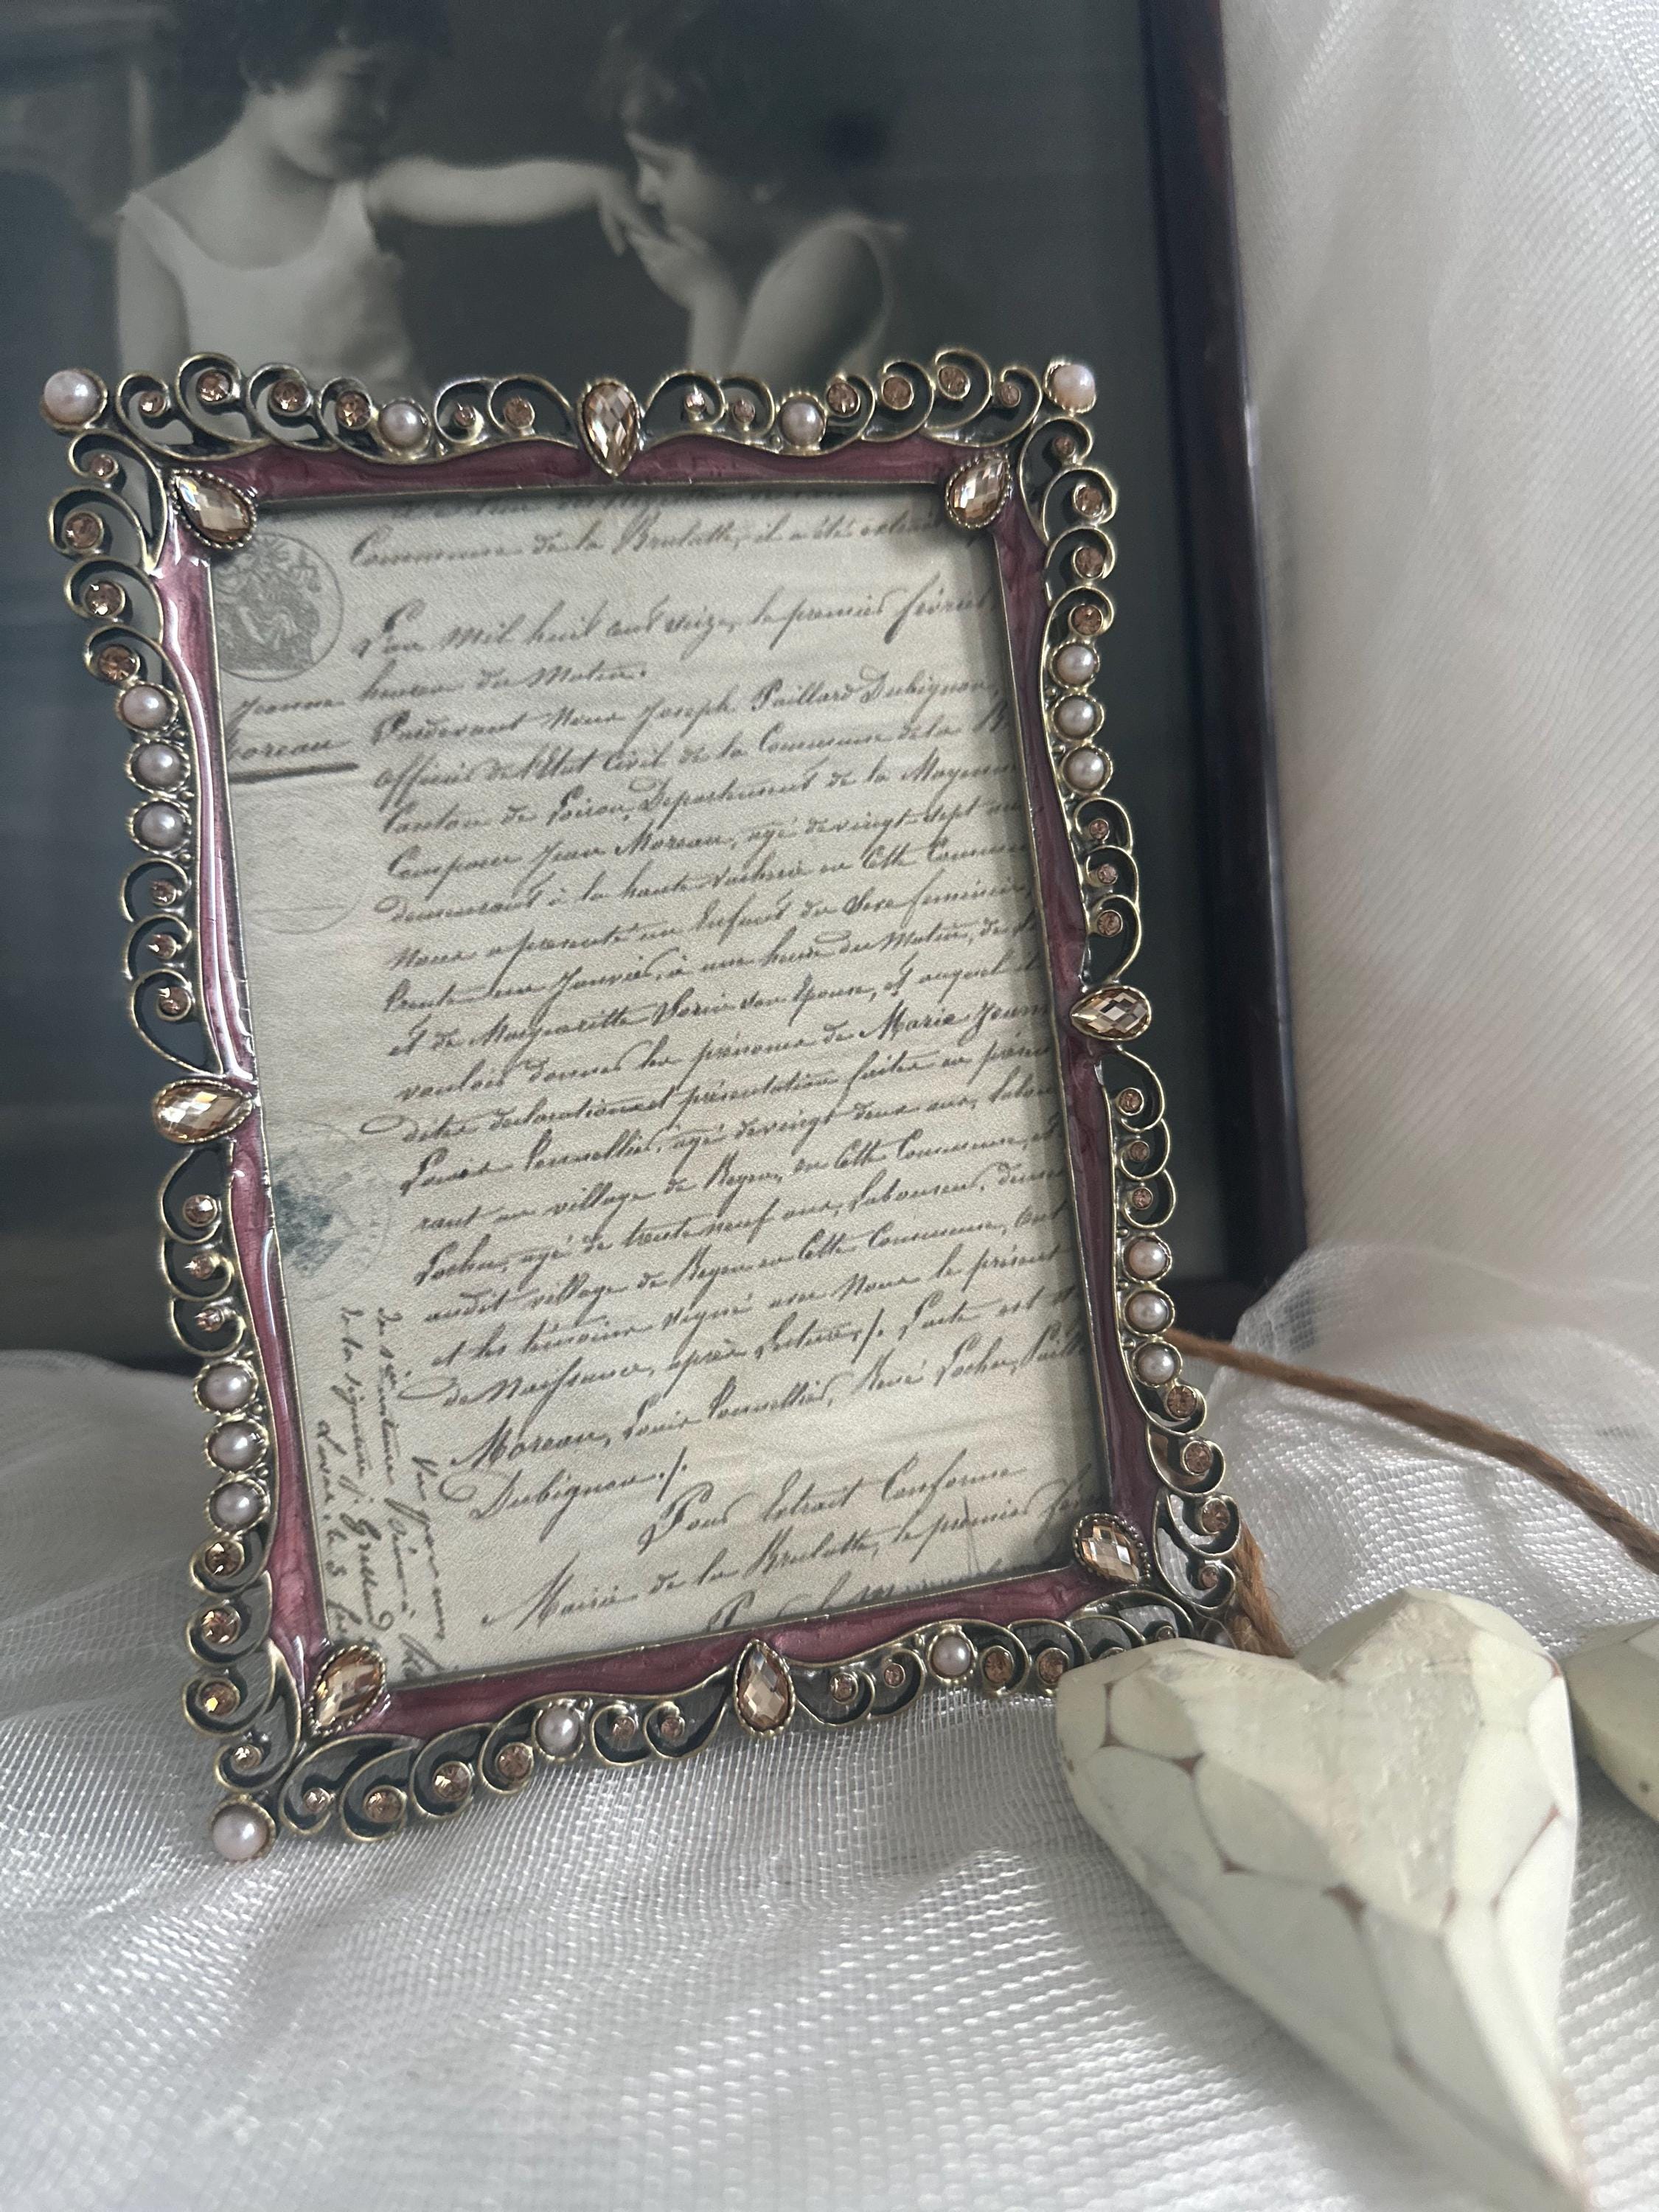 Commune de la Brulatte, il a été extrait
L'an Mil huit cent seize, le premier février
heures du Matin.
Jeanne
Moreau
Pardevant Nous Joseph Paillard Dubignon,
officier de l'Etat Civil de la Commune de la B
Canton de Loiron, Département de la Mayenne
Comparu Jean Moreau, agé de vingt-sept an
demeurant à la haute vacherie en Cette Commune
Nous a presenté un Enfant du Sexe feminin,
trente un Janvier, à une heure du Matin, de
et de Margueritte Morin son Epouse, et auquel
vouloir donner les prénoms de Marie Jeanne
dites declaration et présentation faites en présen
Louis Tonnellier, agé de vingt deux ans, labou
rant au village de Begeu, en Cette Commune, et
Lochu, agé de trente neuf ans, Laboureur, demeu
audit village de Begeu en Cette Commune, ont
et les témoins signé avec Nous le présent
de Naissance, après Lecture ./. L'acte est s
Moreau, Louis Tonnellier, René Lochu, Paill
Dubignon ./.
Pour Extrait Conforme
Mairie de la Brulatte, le premier fév
Vu par nous
de la signature